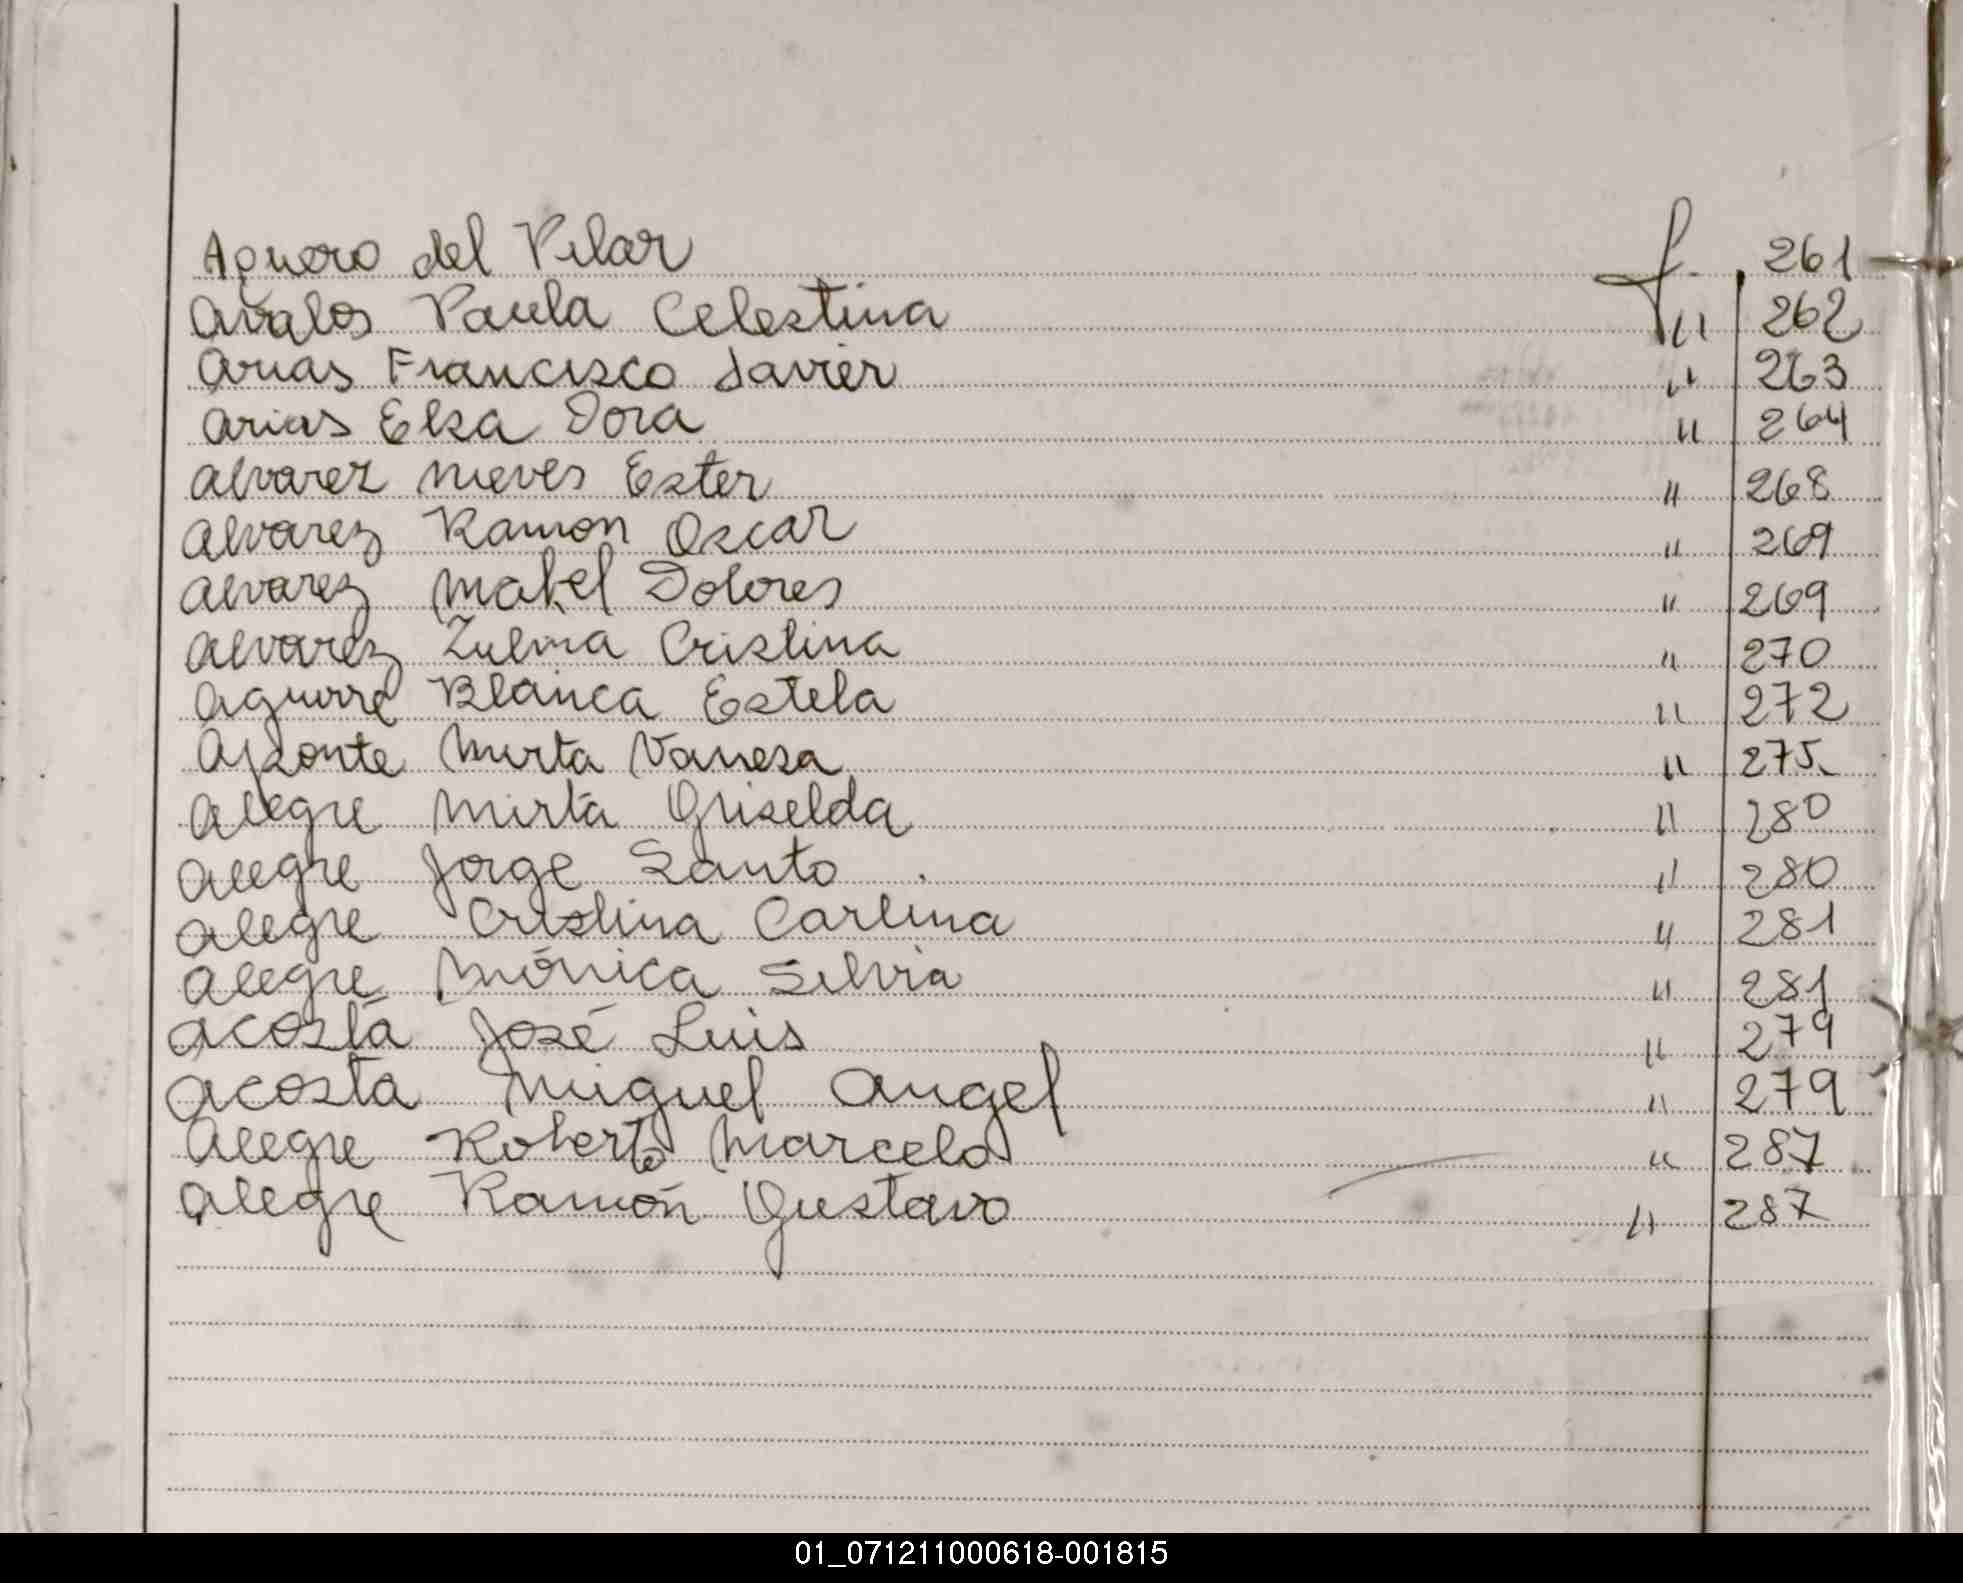 Aguero del Pilar f. 261
Avalos Paula Celestina " 262
Arias Francisco Javier " 263
Arias Elsa Dora " 264
Alvarez Nieves Ester " 268
Alvarez Ramon Oscar " 269
Alvarez Mabel Dolores " 269
Alvarez Zulma Cristina " 270
Aguirre Blanca Estela " 272
Aponte Mirta Vanesa " 275
Alegre Mirta Griselda " 280
Alegre Jorge Santo " 280
Alegre Cristina Carlina " 281
Alegre Mónica Silvia " 281
Acosta José Luis " 279
Acosta Miguel Angel " 279
Alegre Roberto Marcelo " 287
Alegre Ramón Gustavo " 287
01_071211000618-001815